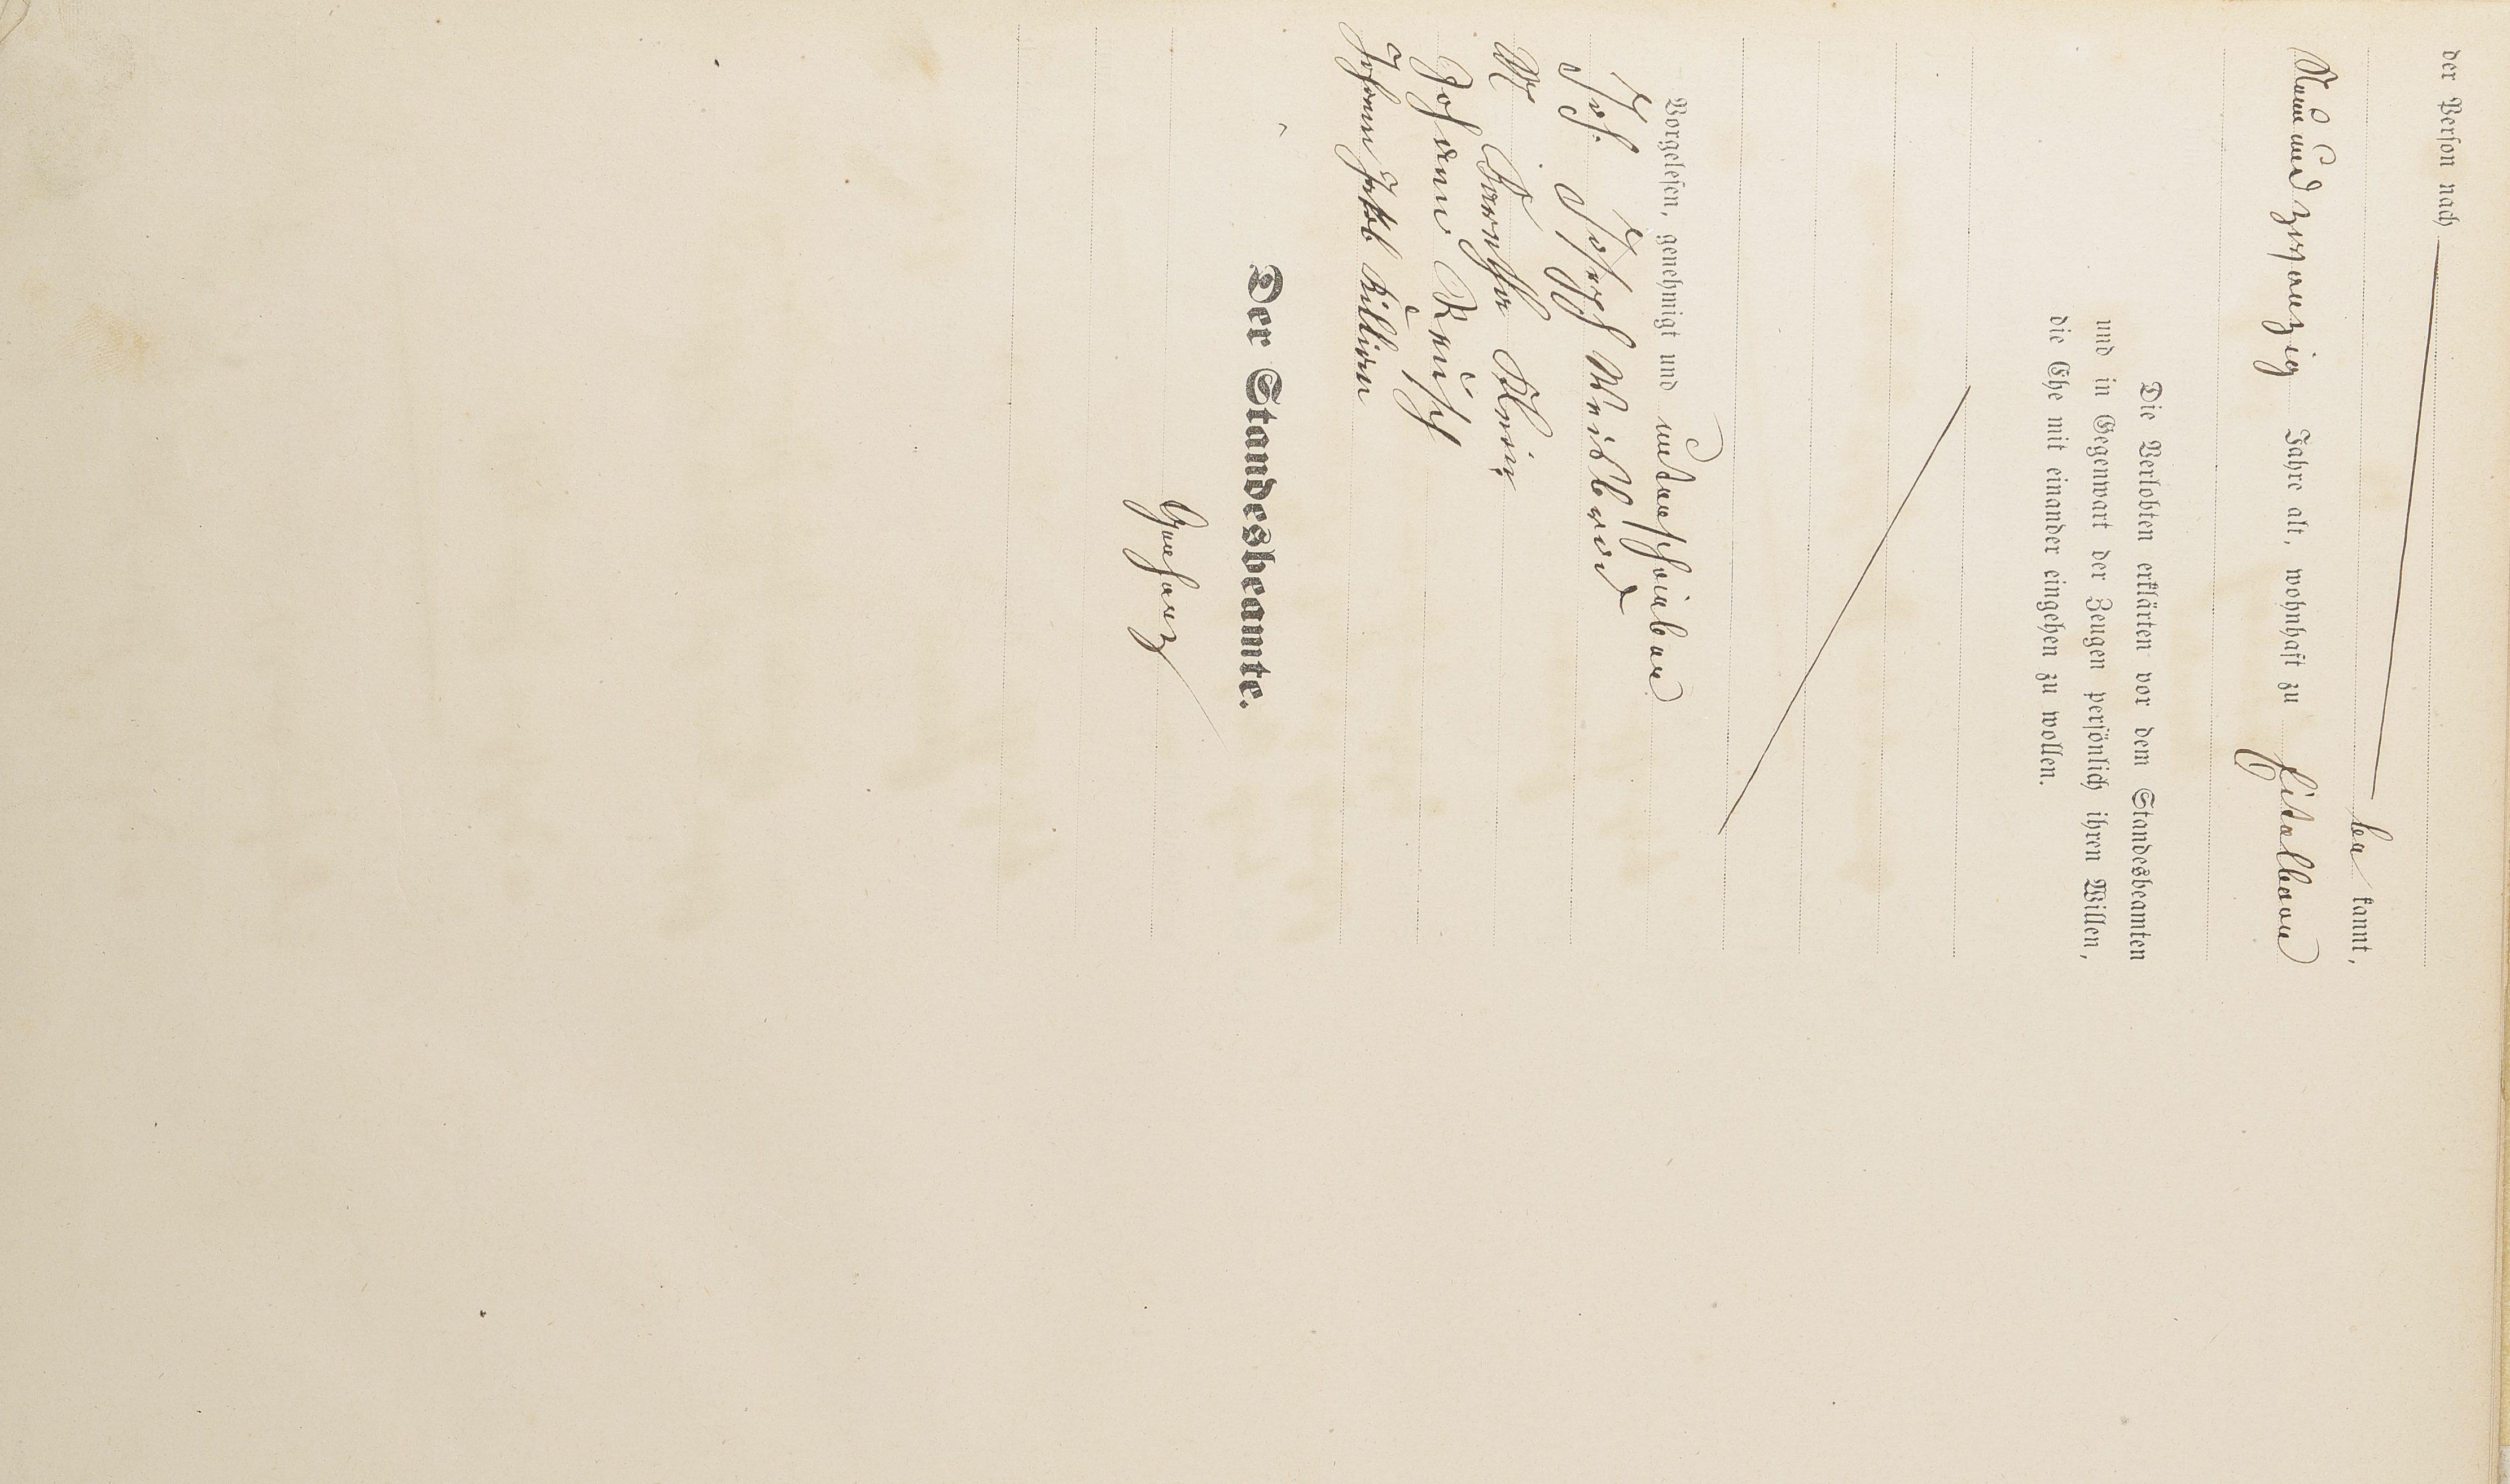 der Person nach
be kannt,
neun und zwanzig Jahre alt, wohnhaft zu Hitdelborn
Die Verlobten erklärten vor dem Standesbeamten
und in Gegenwart der Zeugen persönlich ihren Willen,
die Ehe mit einander eingehen zu wollen.
Vorgelesen, genehmigt und unterschrieben
Joh. Joseph Weisbrod
Klein
Johann Reusch
Johann Jakob Killian
Der Standesbeamte.